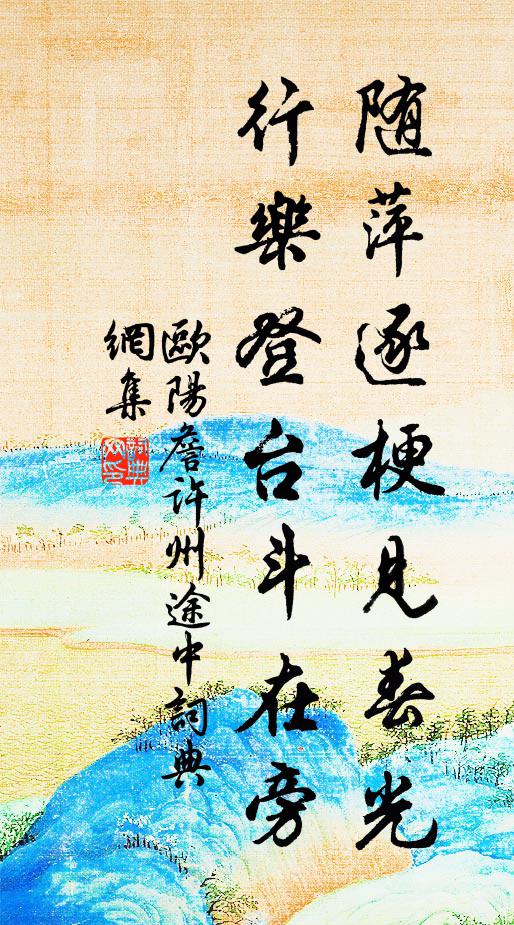 随萍逐梗見春光
行樂登台斗在旁
歐陽詹許州途中詞典
網集